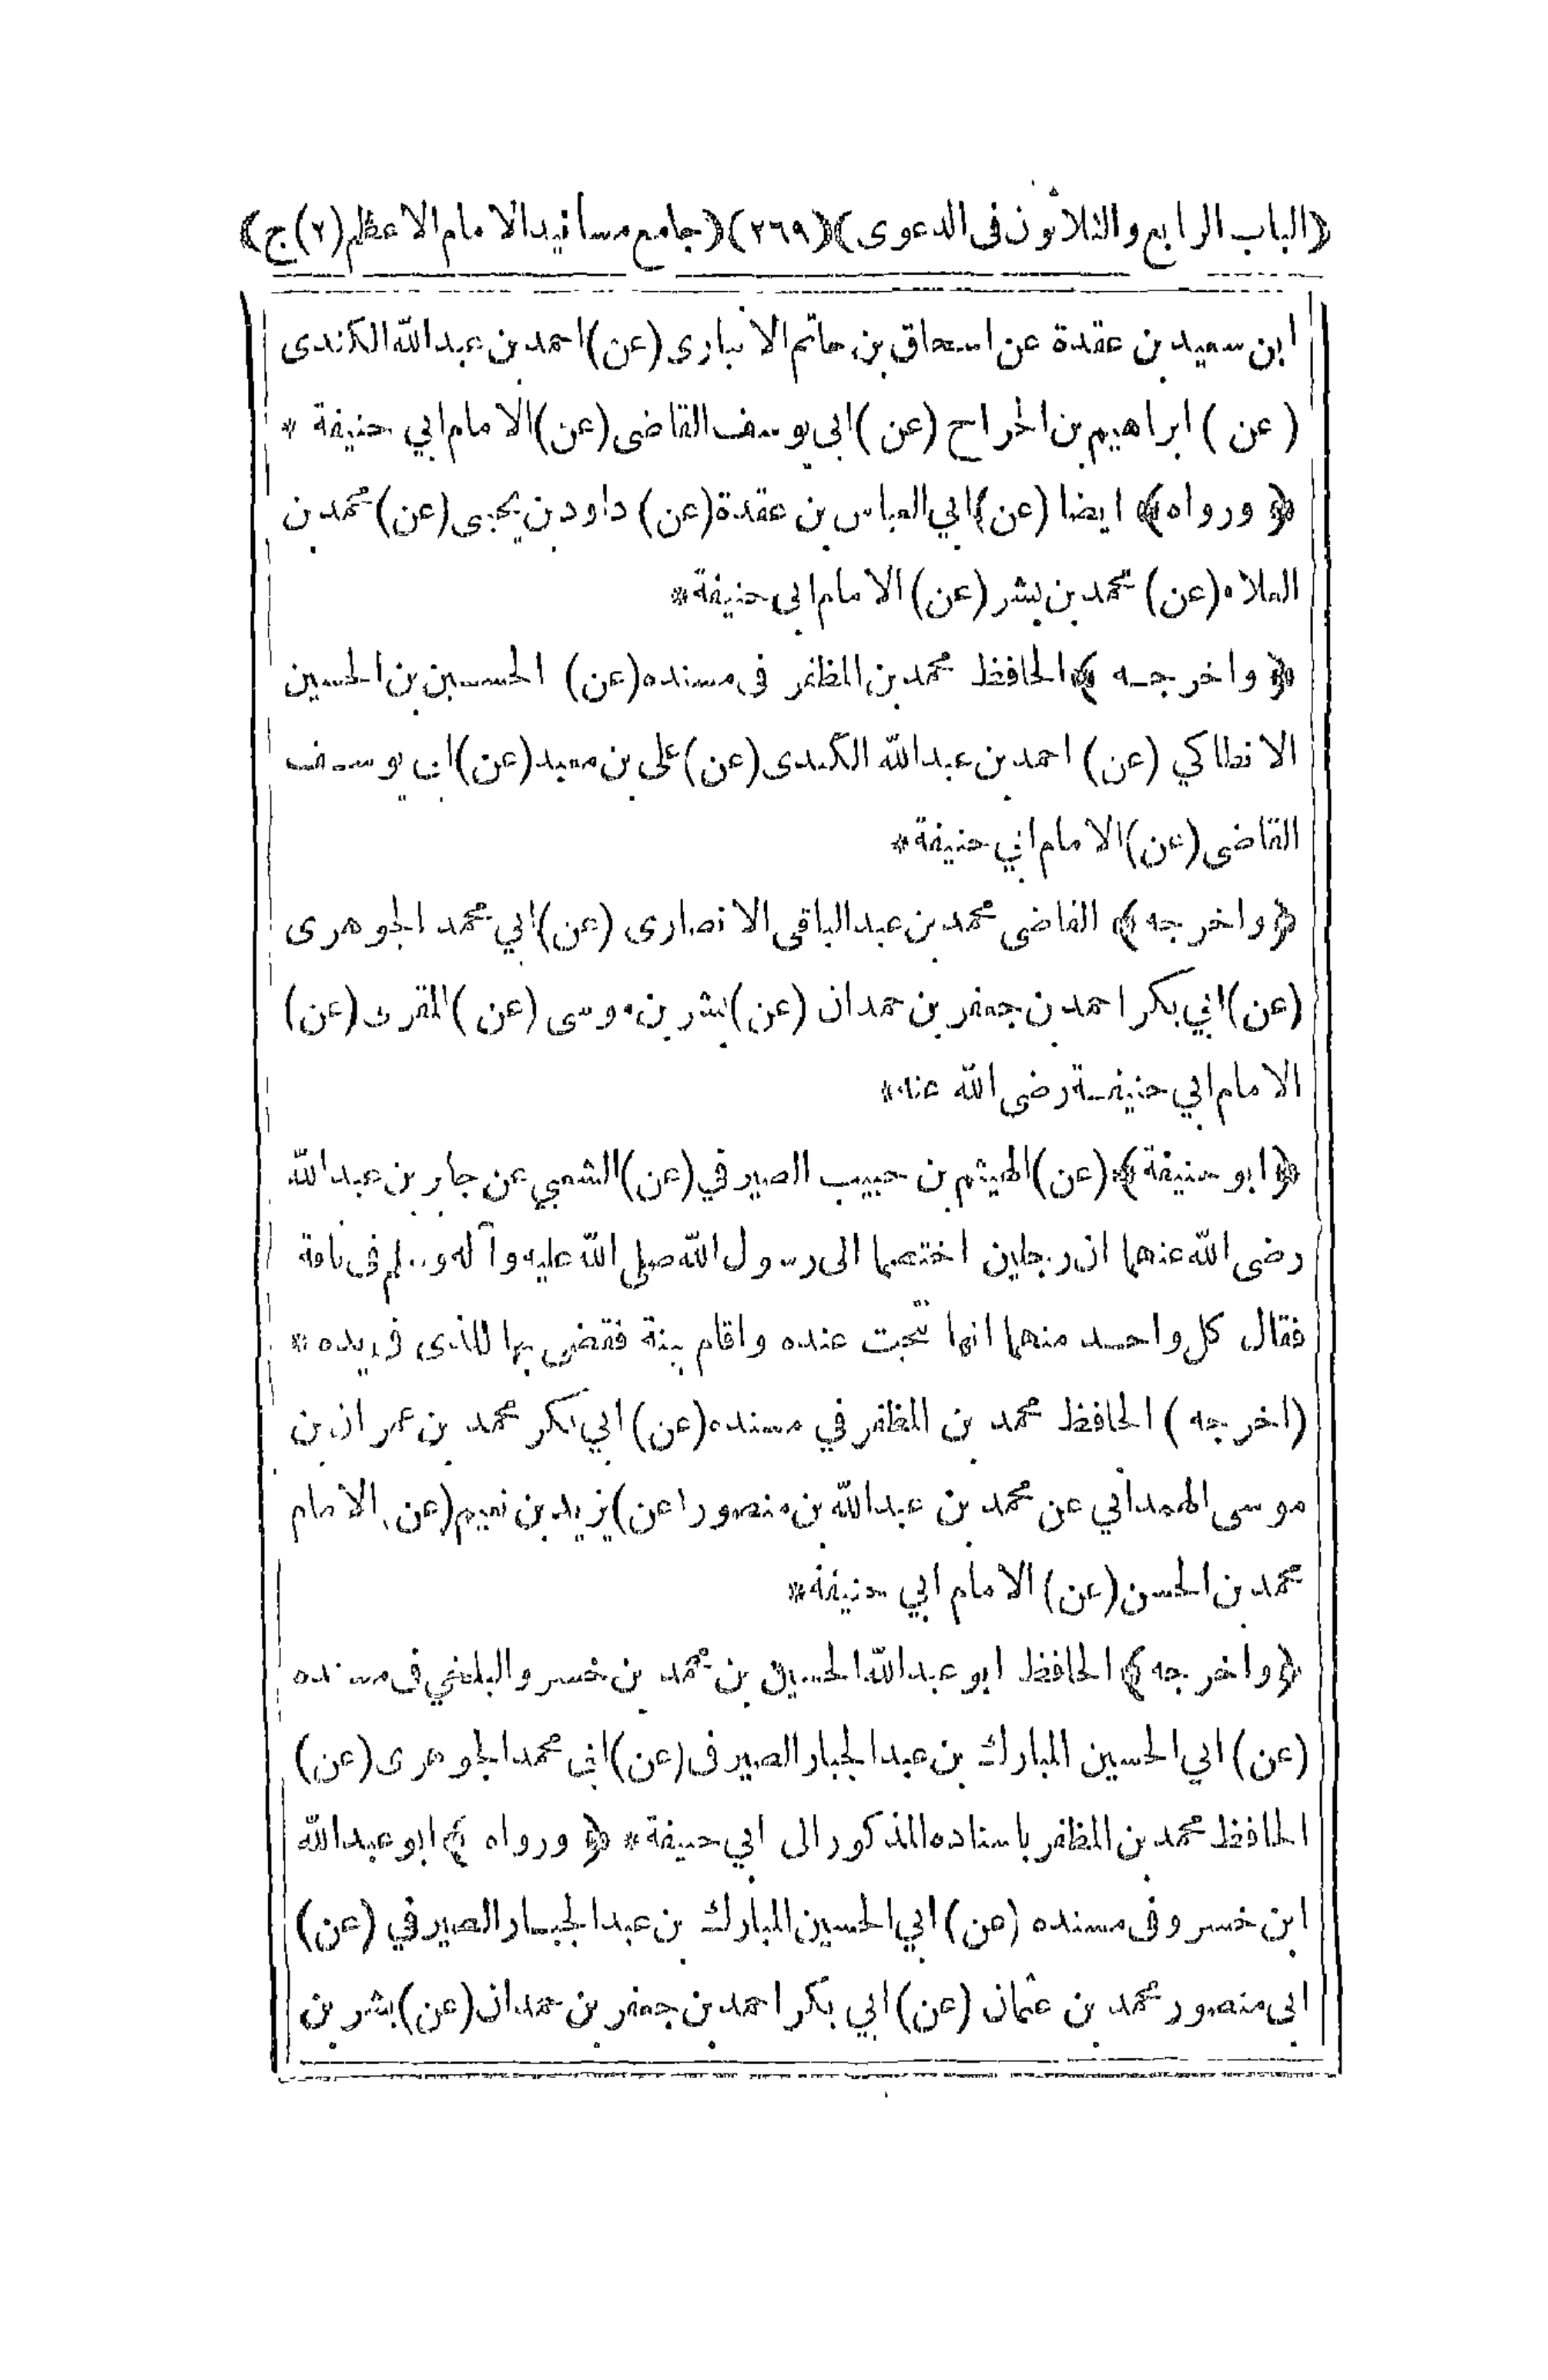 ﴿الباب الرابع والثلاثون فى الدعوى﴾(٢٦٩)﴿جامع مسانيد الامام الاعظم(٢)ج﴾
ابن سعيد بن عقدة عن اسحاق بن حاتم الانبارى (عن) احمد بن عبدالله الكندى
(عن) ابراهيم بن الجراح (عن) ابى يوسف القاضى (عن) الامام ابي حنيفة *
﴿ورواه﴾ ايضا (عن) ابي العباس بن عقدة (عن) داود بن يحيى (عن) محمد بن
العلاء (عن) محمد بن بشر (عن) الامام ابى حنيفة*
﴿واخرجه﴾ الحافظ محمد بن المظفر فى مسنده (عن) الحسين بن الحسين
الانطاكي (عن) احمد بن عبدالله الكندى (عن) على بن معبد (عن) ابى يوسف
القاضى (عن) الامام ابي حنيفة*
﴿واخرجه﴾ القاضى محمد بن عبدالباقى الانصارى (عن) ابي محمد الجوهرى
(عن) ابي بكر احمد بن جعفر بن حمدان (عن) بشر بن موسى (عن) المقرى (عن)
الامام ابي حنيفة رضى الله عنه*
﴿ابو حنيفة﴾ (عن) الهيثم بن حبيب الصيرفي (عن) الشعبي عن جابر بن عبدالله
رضى الله عنهما ان رجلين اختصما الى رسول الله صلى الله عليه وآله وسلم فى ناقة
فقال كل واحد منهما انها نتجت عنده واقام بينة فقضى بها للذى فى يده *
(اخرجه) الحافظ محمد بن المظفر في مسنده (عن) ابي بكر محمد بن عمران بن
موسى الهمداني عن محمد بن عبدالله بن منصور (عن) يزيد بن نعيم (عن) الامام
محمد بن الحسن (عن) الامام ابي حنيفة*
﴿واخرجه﴾ الحافظ ابو عبدالله الحسين بن محمد بن خسرو البلخي فى مسنده
(عن) ابي الحسين المبارك بن عبدالجبار الصيرفى (عن) ابي محمد الجوهرى (عن)
الحافظ محمد بن المظفر باسناده المذكور الى ابي حنيفة* ﴿ورواه﴾ ابو عبدالله
ابن خسرو فى مسنده (عن) ابي الحسين المبارك بن عبدالجبار الصيرفي (عن)
ابى منصور محمد بن عثمان (عن) ابي بكر احمد بن جعفر بن حمدان (عن) بشر بن